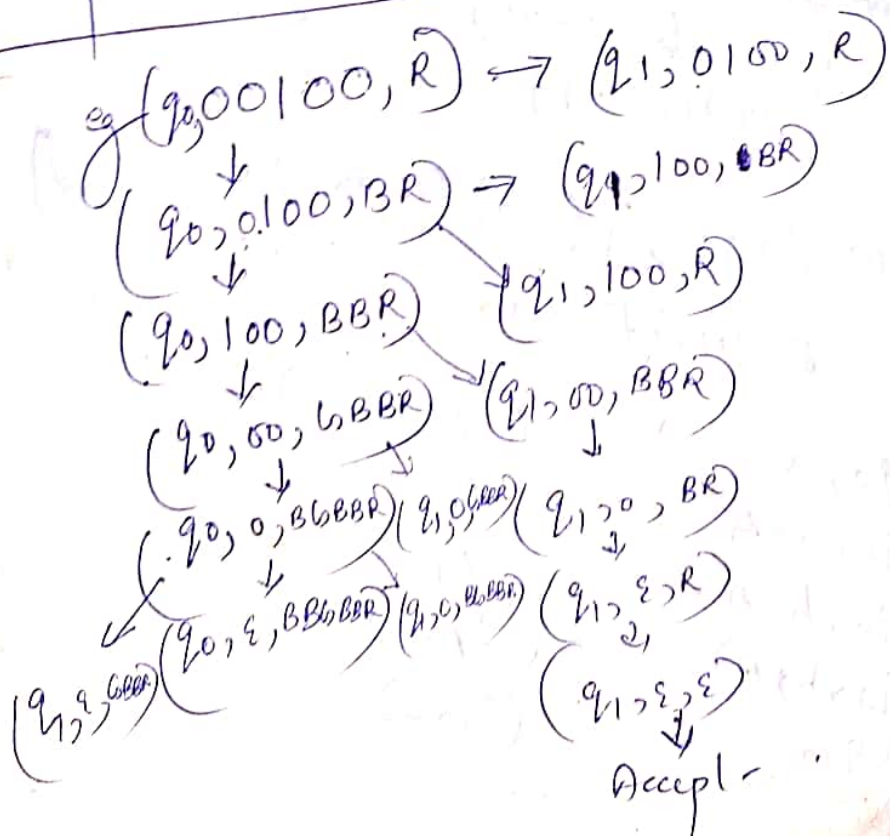 eg (q0,00100, R) → (q1, 0100, R)
(q0, 0100, BR) → (q1, 100, BR)
(q1, 100, R)
(q0, 100, BBR)
(q1, 00, BBR)
(q0, 00, GBBR)
(q0, 0, BGBBR) (q1, 0, GBBR) (q1, 0, BR)
(q1, ε, GBBR) (q0, ε, BBGBBR) (q1, 0, BGBBR) (q1, ε, R)
(q1, ε, ε)
Accept